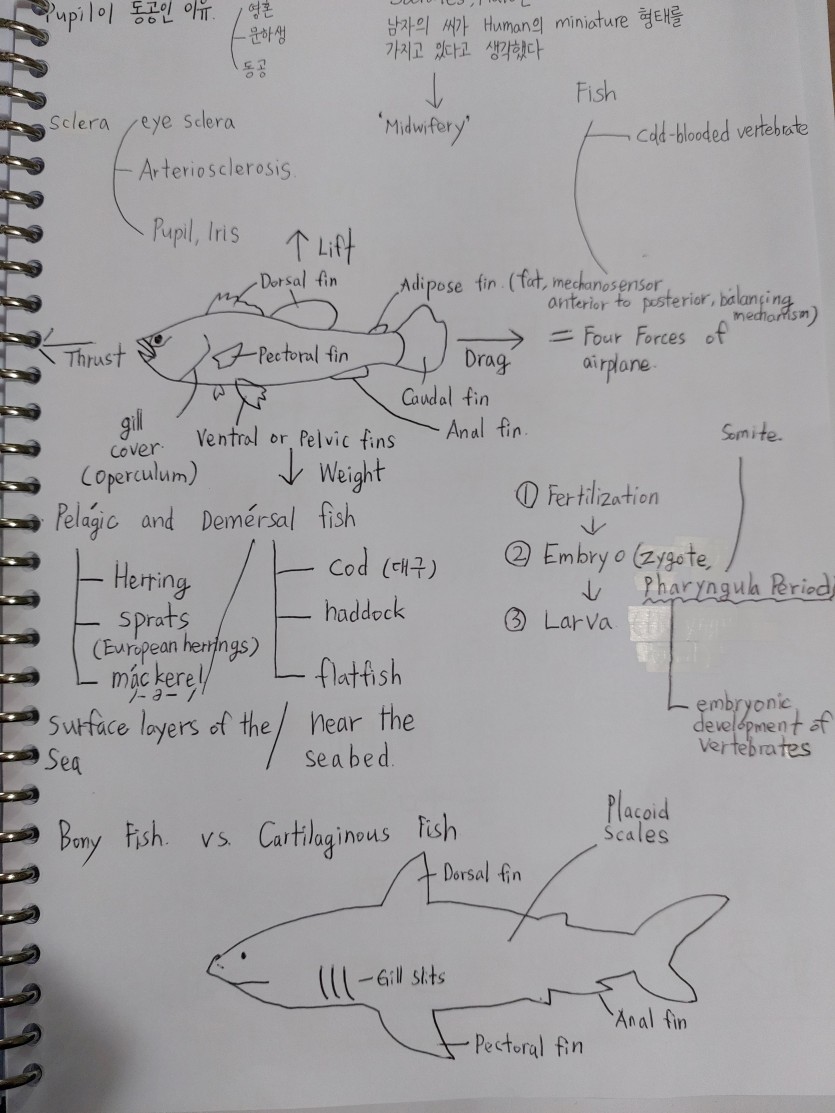 Pupil이 동공인 이유.
영혼
문하생
동공
남자의 씨가 Human의 miniature 형태를
가지고 있다고 생각했다
'Midwifery'
sclera
eye sclera
Arteriosclerosis.
Pupil, Iris
Fish
Cold-blooded vertebrate
↑ Lift
Dorsal fin
Adipose fin. (fat, mechanosensor
anterior to posterior, balancing
mechanism)
Thrust
Pectoral fin
Drag
= Four Forces of
airplane.
Caudal fin
Anal fin.
gill
cover.
(operculum)
Ventral or Pelvic fins
↓ Weight
Pelágic and Demérsal fish
Herring
sprats
(European herrings)
máckerel
Surface layers of the
Sea
cod (대구)
haddock
flatfish
near the
seabed.
Somite.
① Fertilization
↓
② Embryo (zygote,
Pharyngula Period)
↓
③ Larva
embryonic
development of
vertebrates
Bony Fish. vs. Cartilaginous Fish
Placoid
Scales
Dorsal fin
Gill slits
Anal fin
Pectoral fin